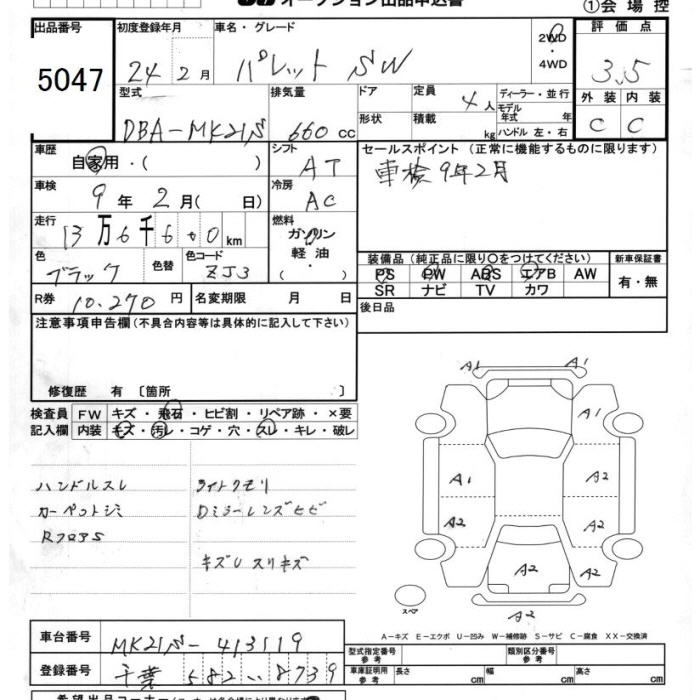 オークション出品申込書
①会場控
出品番号 5047
初度登録年月 24年 2月
車名・グレード パレット SW
2WD・4WD
評価点 3.5
型式 DBA-MK21S
排気量 660 cc
ドア 形状
定員 4人
積載 kg
ディーラー・並行
モデル年式 年式
ハンドル 左・右
外装 C 内装 C
車歴 自家用・( )
シフト AT
セールスポイント(正常に機能するものに限ります)
車検 9年2月
車検 9年 2月( 日)
冷房 AC
走行 13万6千6 0 km
燃料 ガソリン 軽油・( )
色 ブラック 色替 色コード ZJ3
装備品(純正品に限り○をつけてください) 新車保証書
PS PW ABS エアB AW 有・無
SR ナビ TV カワ
R券 10,270円 名変期限 月 日
後日品
注意事項申告欄(不具合内容等は具体的に記入して下さい)
修復歴 有 〔箇所 〕
検査員記入欄 FW キズ・飛石・ヒビ割・リペア跡・×要
内装 キズ・汚レ・コゲ・穴・スレ・キレ・破レ
ハンドルスレ ライトクモリ
カーペットシミ Dミラーレンズヒビ
RフロアS
キズU スリキズ
A1 A1
A1
A1 A2
A2 A2
A2 A2
A2
スペア
A-キズ E-エクボ U-凹み W-補修跡 S-サビ C-腐食 XX-交換済
車台番号 MK21S-413119
登録番号 千葉 582 い 8739
型式指定番号 参考 類別区分番号 参考
車庫証明用 参考 長さ cm 幅 cm 高さ cm